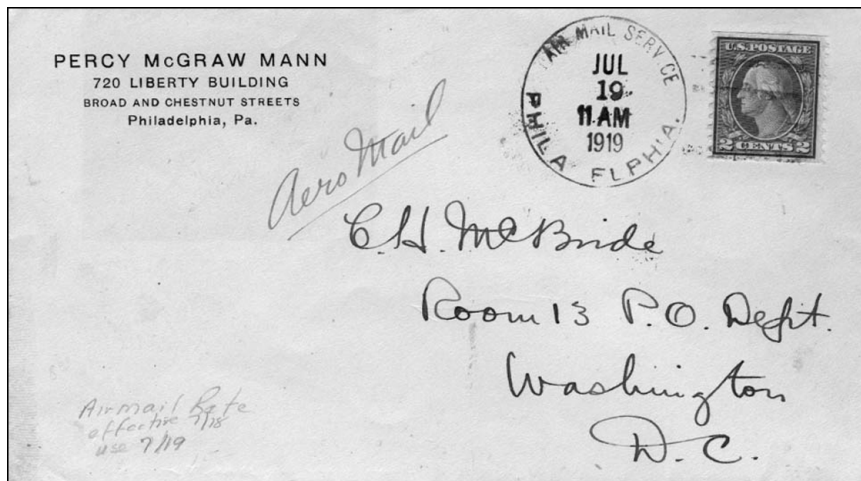 PERCY McGRAW MANN
720 LIBERTY BUILDING
BROAD AND CHESTNUT STREETS
Philadelphia, Pa.
Aero Mail
AIR MAIL SERVICE
JUL
19
11 AM
1919
PHILA ELPHIA.
U.S. POSTAGE
2 CENTS 2
C.H. McBride
Room 13 P.O. Dept.
Washington
D.C.
Airmail Rate
effective 7/18
use 7/19